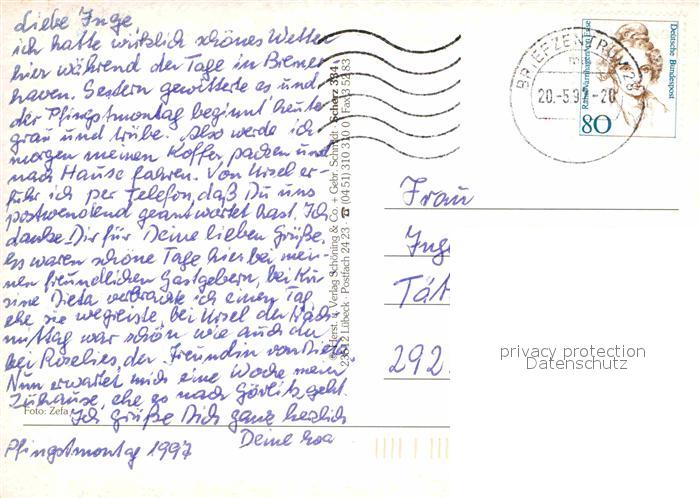 Liebe Inge
ich hatte wirklich schönes Wetter
hier während der Tage in Bremer
haven. Gestern gewitterte es und
der Pfingstmontag beginnt heute
grau und trübe. Also werde ich
morgen meinen Koffer packen und
nach Hause fahren. Von Ursel er-
fuhr ich per Telefon, daß Du uns
postwendend geantwortet hast. Ich
danke Dir für Deine lieben Grüße.
Es waren schöne Tage hier bei mei-
nen freundlichen Gastgebern, bei Ku-
sine Dieta verbrachte ich einen Tag,
ehe sie wegreiste, bei Ursel der Nach-
mittag war schön wie auch der
bei Roselies, der Freundin von
Nun erwartet mich eine Woche mein
Zuhause, ehe es nach Görlitz geht.
Ich grüße Dich ganz herzlich
Deine
Pfingstmontag 1997
Foto: Zefa
Verlag Schöning & Co + Gebr. Schmidt · Scherz 3341
23512 Lübeck · Postfach 24 23 · ☎ (04 51) 310 310 0 Fax 3 52 83
BRIEFZENTRUM 28
20.-5.97-20
Deutsche Bundespost
80
Frau
Inge
Tät
292
privacy protection
Datenschutz